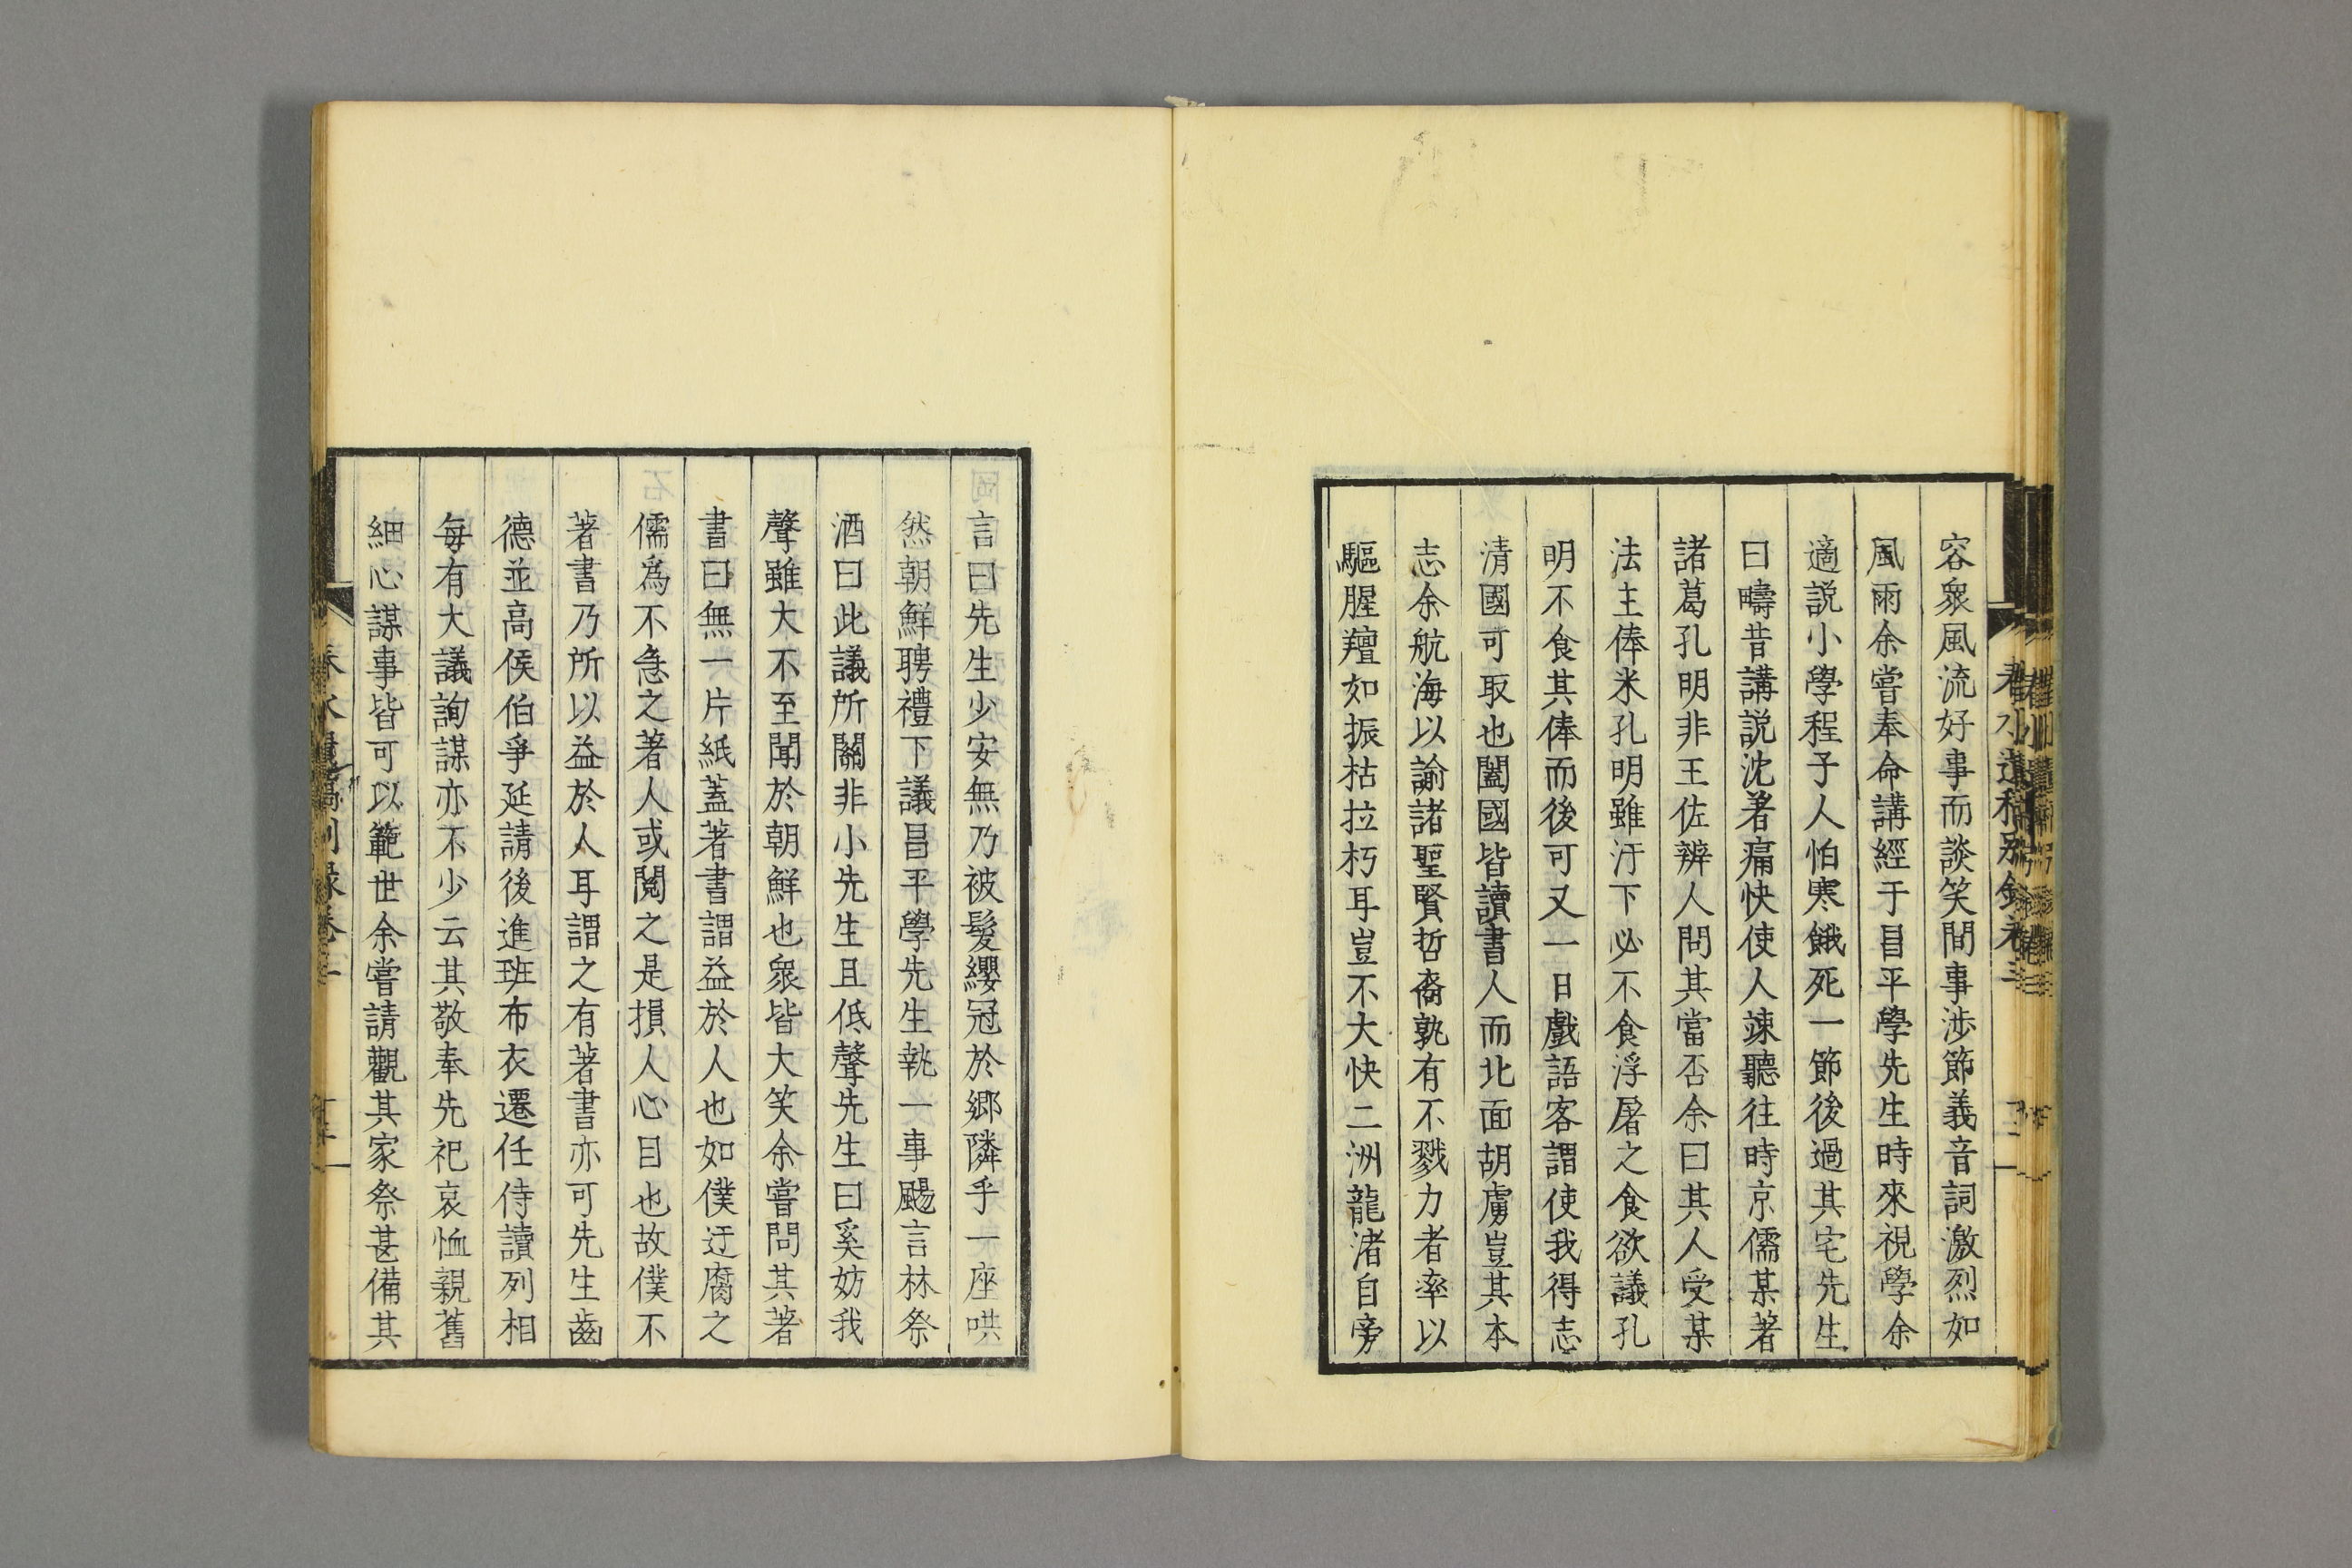 容衆風流好事而談笑間事渉節義音詞激烈如
風雨余嘗奉命講經于昌平學先生時來視學余
適説小學程子人怕寒餓死一節後過其宅先生
曰疇昔講説沈著痛快使人竦聽往時京儒某著
諸葛孔明非王佐辨人問其當否余曰其人受某
法主俸米孔明雖汙下必不食浮屠之食欲議孔
明不食其俸而後可又一日戲語客謂使我得志
清國可取也闔國皆讀書人而北面胡虜豈其本
志余航海以諭諸聖賢哲裔孰有不戮力者率以
驅腥羶如振枯拉朽耳豈不大快二洲龍渚自旁
言曰先生少安無乃被髮纓冠於郷隣乎一座哄
然朝鮮聘禮下議昌平學先生執一事颺言林祭
酒曰此議所關非小先生且低聲先生曰奚妨我
聲雖大不至聞於朝鮮也衆皆大笑余嘗問其著
書曰無一片紙蓋著書謂益於人也如僕迂腐之
儒為不急之著人或閲之是損人心目也故僕不
著書乃所以益於人耳謂之有著書亦可先生齒
德並高侯伯爭延請後進班布衣遷任侍讀列相
毎有大議詢謀亦不少云其敬奉先祀哀恤親舊
細心謀事皆可以範世余嘗請觀其家祭甚備其